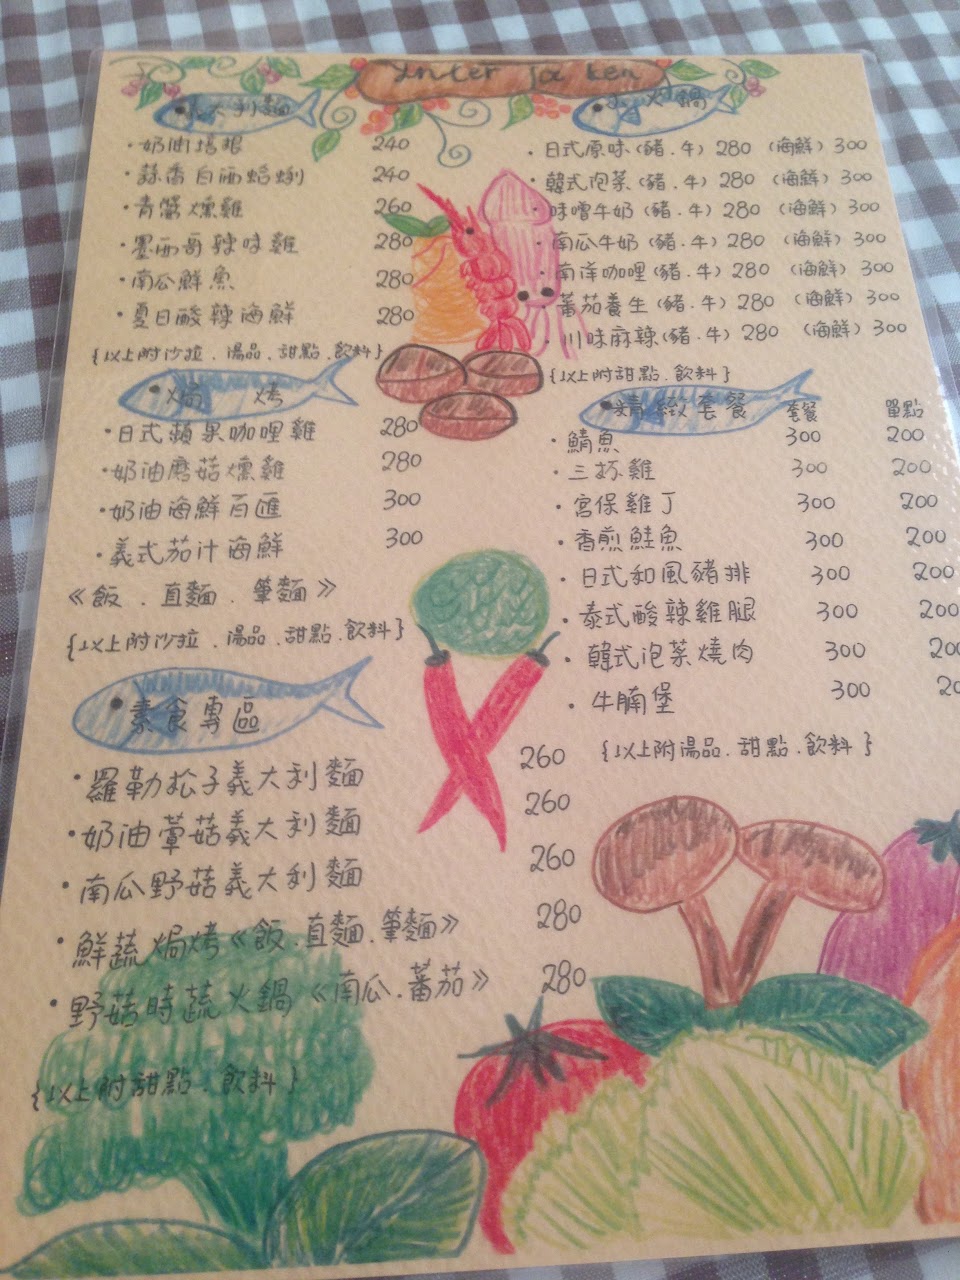 Inter la ken
義大利麵
·奶油培根 240
·蒜香白酒蛤蜊 240
·青醬燻雞 260
·墨西哥辣味雞 280
·南瓜鮮魚 280
·夏日酸辣海鮮 280
{以上附沙拉.湯品.甜點.飲料}
焗 烤
·日式蘋果咖哩雞 280
·奶油磨菇燻雞 280
·奶油海鮮百匯 300
·義式茄汁海鮮 300
《飯.直麵.筆麵》
{以上附沙拉.湯品.甜點.飲料}
素食專區
·羅勒松子義大利麵 260
·奶油蕈菇義大利麵 260
·南瓜野菇義大利麵 260
·鮮蔬焗烤《飯.直麵.筆麵》 280
·野菇時蔬火鍋《南瓜.蕃茄》 280
{以上附甜點.飲料}
小火鍋
·日式原味(豬.牛) 280 (海鮮) 300
·韓式泡菜(豬.牛) 280 (海鮮) 300
·味噌牛奶(豬.牛) 280 (海鮮) 300
·南瓜牛奶(豬.牛) 280 (海鮮) 300
·南洋咖哩(豬.牛) 280 (海鮮) 300
·蕃茄養生(豬.牛) 280 (海鮮) 300
·川味麻辣(豬.牛) 280 (海鮮) 300
{以上附甜點.飲料}
精緻套餐 套餐 單點
·鯖魚 300 200
·三杯雞 300 200
·宮保雞丁 300 200
·香煎鮭魚 300 200
·日式和風豬排 300 200
·泰式酸辣雞腿 300 200
·韓式泡菜燒肉 300 200
·牛腩堡 300 20
{以上附湯品.甜點.飲料}